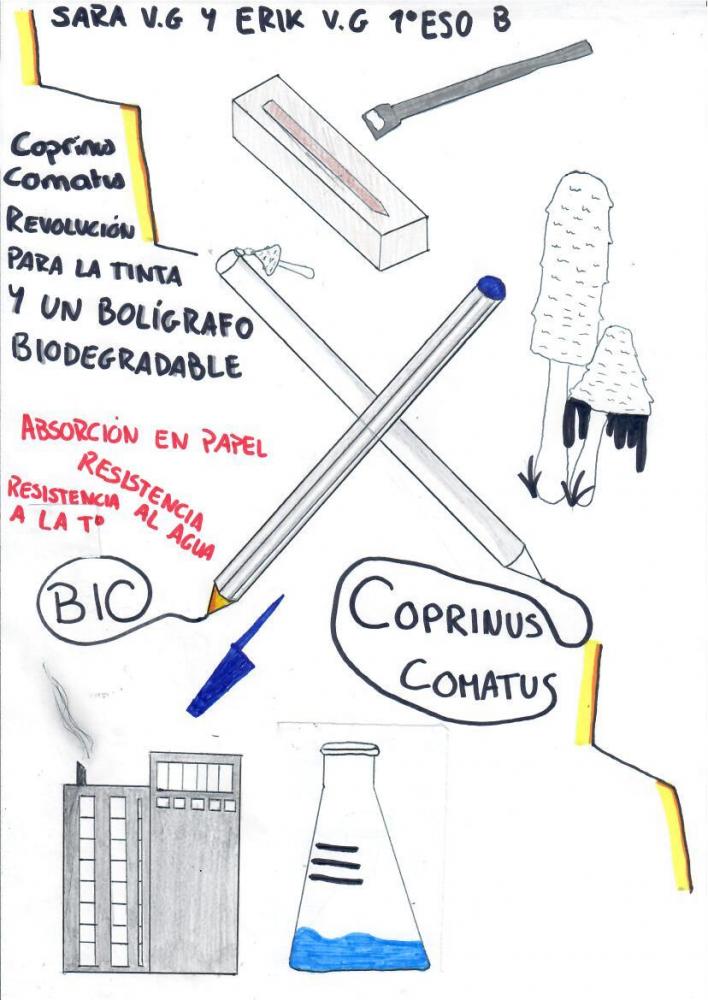 SARA V.G Y ERIK V.G 1ºESO B
Coprinus
Comatus
REVOLUCIÓN
PARA LA TINTA
Y UN BOLÍGRAFO
BIODEGRADABLE
ABSORCIÓN EN PAPEL
RESISTENCIA
AL AGUA
RESISTENCIA
A LA Tº
BIC
COPRINUS
COMATUS